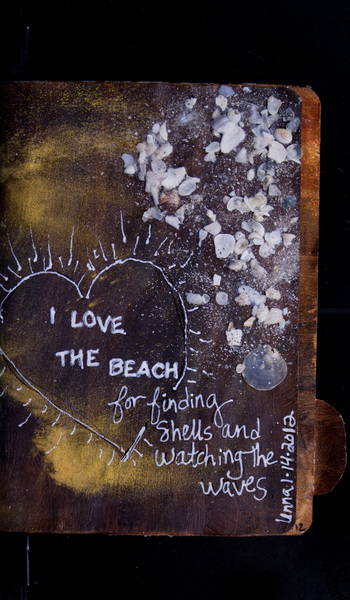 I LOVE
THE BEACH
for finding
shells and
watching the
waves
Lenna 1·14·2012
12